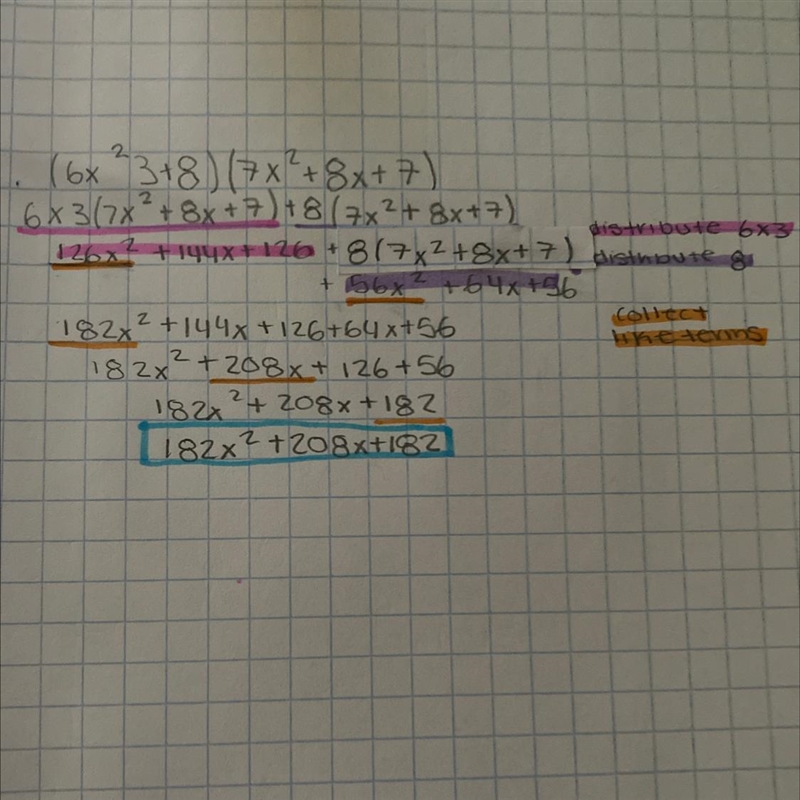 . (6x²3+8)(7x²+8x+7)
6×3(7x²+8x+7)+8(7x²+8x+7)
126x²+144x+126+8(7x²+8x+7) distribute 6×3
distribute 8
+56x²+64x+56
182x²+144x+126+64x+56 collect
like terms
182x²+208x+126+56
182x²+208x+182
182x²+208x+182